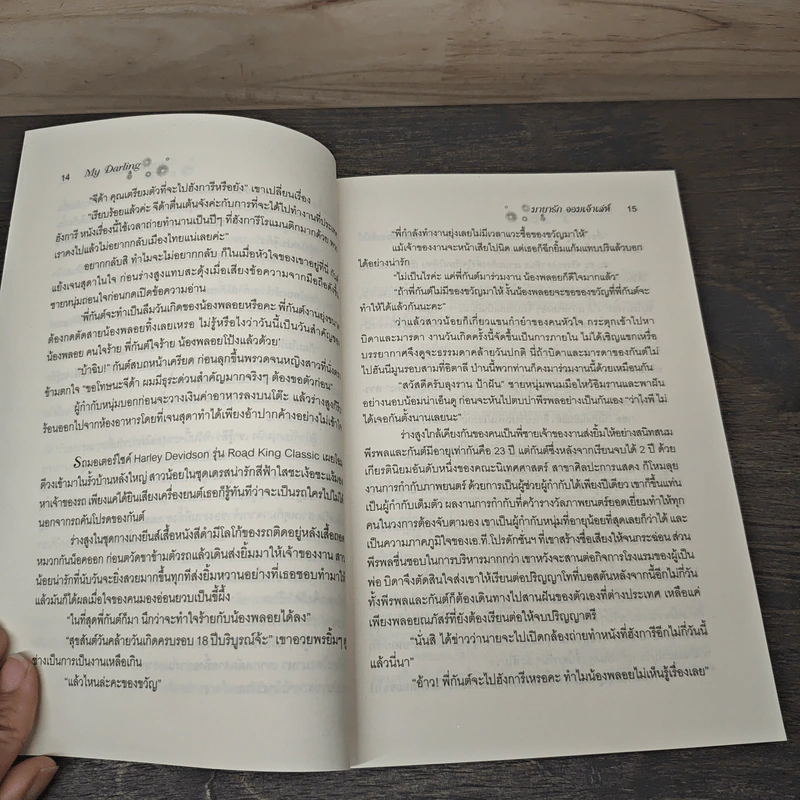 14 My Darling
"จีด้า คุณเตรียมตัวที่จะไปฮังการีหรือยัง" เขาเปลี่ยนเรื่อง
"เรียบร้อยแล้วค่ะ จีด้าตื่นเต้นจังค่ะกับการที่จะได้ไปทำงานที่ประเทศ
ฮังการี หนังเรื่องนี้ใช้เวลาถ่ายทำนานเป็นปีๆ ที่ฮังการีโรแมนติกมากด้วย
เราคงไปแล้วไม่อยากกลับเมืองไทยแน่เลยค่ะ"
อยากกลับสิ ทำไมจะไม่อยากกลับ ก็ในเมื่อหัวใจของเขาอยู่ที่นี่ กันต์
แย้งเจนสุดาในใจ ก่อนร่างสูงแทบสะดุ้งเมื่อเสียงข้อความจากมือถือดังขึ้น
ชายหนุ่มถอนใจก่อนกดเปิดข้อความอ่าน
'พี่กันต์จะทำเป็นลืมวันเกิดของน้องพลอยหรือคะ พี่กันต์งานยุ่งขนาด
ต้องกดตัดสายน้องพลอยทิ้งเลยเหรอ ไม่รู้หรือไงว่าวันนี้เป็นวันสำคัญของ
น้องพลอย คนใจร้าย พี่กันต์ใจร้าย น้องพลอยโป้งแล้วด้วย'
"บ้าฉิบ!" กันต์สบถหน้าเครียด ก่อนลุกขึ้นพรวดจนหญิงสาวที่นั่งตรง
ข้ามตกใจ "ขอโทษนะจีด้า ผมมีธุระด่วนสำคัญมากจริงๆ ต้องขอตัวก่อน"
ผู้กำกับหนุ่มบอกก่อนจะวางเงินค่าอาหารลงบนโต๊ะ แล้วร่างสูงก็รีบ
ร้อนออกไปจากห้องอาหารโดยที่เจนสุดาทำได้เพียงอ้าปากค้างอย่างไม่เข้าใจ
รถมอเตอร์ไซค์ Harley Devidson รุ่น Road King Classic เผยโฉม
ตีวงเข้ามาในรั้วบ้านหลังใหญ่ สาวน้อยในชุดเดรสน่ารักสีฟ้าใสชะเง้อชะแง้มอง
หาเจ้าของรถ เพียงแค่ได้ยินเสียงเครื่องยนต์เธอก็รู้ทันทีว่าจะเป็นรถใครไปไม่ได้
นอกจากรถคันโปรดของกันต์
ร่างสูงในชุดกางเกงยีนส์เสื้อหนังสีดำมีโลโก้ของรถติดอยู่หลังเสื้อถอด
หมวกกันน็อคออก ก่อนตวัดขาข้ามตัวรถแล้วเดินส่งยิ้มมาให้เจ้าของงาน สาว
น้อยน่ารักที่นับวันจะยิ่งสวยมากขึ้นทุกทีส่งยิ้มหวานอย่างที่เธอชอบทำมาให้
แล้วมันก็ได้ผลเมื่อใจของคนมองอ่อนยวบเป็นขี้ผึ้ง
"ในที่สุดพี่กันต์ก็มา นึกว่าจะทำใจร้ายกับน้องพลอยได้ลง"
"สุขสันต์วันคล้ายวันเกิดครบรอบ 18 ปีบริบูรณ์จ้ะ" เขาอวยพรยิ้มๆ
ช่างเป็นการเป็นงานเหลือเกิน
"แล้วไหนล่ะคะของขวัญ"
มายารัก จอมเจ้าเล่ห์ 15
"พี่กำลังทำงานยุ่งเลยไม่มีเวลาแวะซื้อของขวัญมาให้"
แม้เจ้าของงานจะหน้าเสียไปนิด แต่เธอก็ฉีกยิ้มแก้มแทบปริแล้วบอก
ได้อย่างน่ารัก
"ไม่เป็นไรค่ะ แค่พี่กันต์มาร่วมงาน น้องพลอยก็ดีใจมากแล้ว"
"ถ้าพี่กันต์ไม่มีของขวัญมาให้ งั้นน้องพลอยจะขอของขวัญที่พี่กันต์จะ
ทำให้ได้แล้วกันนะคะ"
ว่าแล้วสาวน้อยก็เกี่ยวแขนกำยำของคนหัวใจ กระตุกเข้าไปหา
บิดาและมารดา งานวันเกิดครั้งนี้จัดขึ้นเป็นการภายใน ไม่ได้เชิญแขกเหรื่อ
บรรยากาศจึงดูจะธรรมดาคล้ายวันปกติ นี่ถ้าบิดาและมารดาของกันต์ไม่
ไปฮันนีมูนรอบสามที่อิตาลี ป่านนี้พวกท่านก็คงมาร่วมงานนี้ด้วยเหมือนกัน
"สวัสดีครับลุงราน ป้าฝัน" ชายหนุ่มพนมมือไหว้อิมรานและพาฝัน
อย่างนอบน้อมน่าเอ็นดู ก่อนจะหันไปตบบ่าพีรพลอย่างเป็นกันเอง "ว่าไงพี ไม่
ได้เจอกันตั้งนานเลยนะ"
ร่างสูงใกล้เคียงกันของคนเป็นพี่ชายเจ้าของงานส่งยิ้มให้อย่างสนิทสนม
พีรพลและกันต์มีอายุเท่ากันคือ 23 ปี แต่กันต์ซึ่งหลังจากเรียนจบได้ 2 ปี ด้วย
เกียรตินิยมอันดับหนึ่งของคณะนิเทศศาสตร์ สาขาศิลปะการแสดง ก็โหมลุย
งานการกำกับภาพยนตร์ ด้วยการเป็นผู้ช่วยผู้กำกับได้เพียงปีเดียว เขาก็ขึ้นแท่น
เป็นผู้กำกับเต็มตัว ผลงานการกำกับที่คว้ารางวัลภาพยนตร์ยอดเยี่ยมทำให้ทุก
คนในวงการต้องจับตามอง เขาเป็นผู้กำกับหนุ่มที่อายุน้อยที่สุดเลยก็ว่าได้ และ
เป็นความภาคภูมิใจของเอ.ที.โปรดักชั่นฯ ที่เขาสร้างชื่อเสียงให้จนกระฉ่อน ส่วน
พีรพลชื่นชอบในการบริหารมากกว่า เขาหวังจะสานต่อกิจการโรงแรมของผู้เป็น
พ่อ บิดาจึงตัดสินใจส่งเขาให้เรียนต่อปริญญาโทที่บอสตันหลังจากนี้อีกไม่กี่วัน
ทั้งพีรพลและกันต์ก็ต้องเดินทางไปสานฝันของตัวเองที่ต่างประเทศ เหลือแค่
เพียงพลอยณภัสร์ที่ยังต้องเรียนต่อให้จบปริญญาตรี
"นั่นสิ ได้ข่าวว่านายจะไปเปิดกล้องถ่ายทำหนังที่ฮังการีอีกไม่กี่วันนี้
แล้วนี่นา"
"อ้าว! พี่กันต์จะไปฮังการีเหรอคะ ทำไมน้องพลอยไม่เห็นรู้เรื่องเลย"